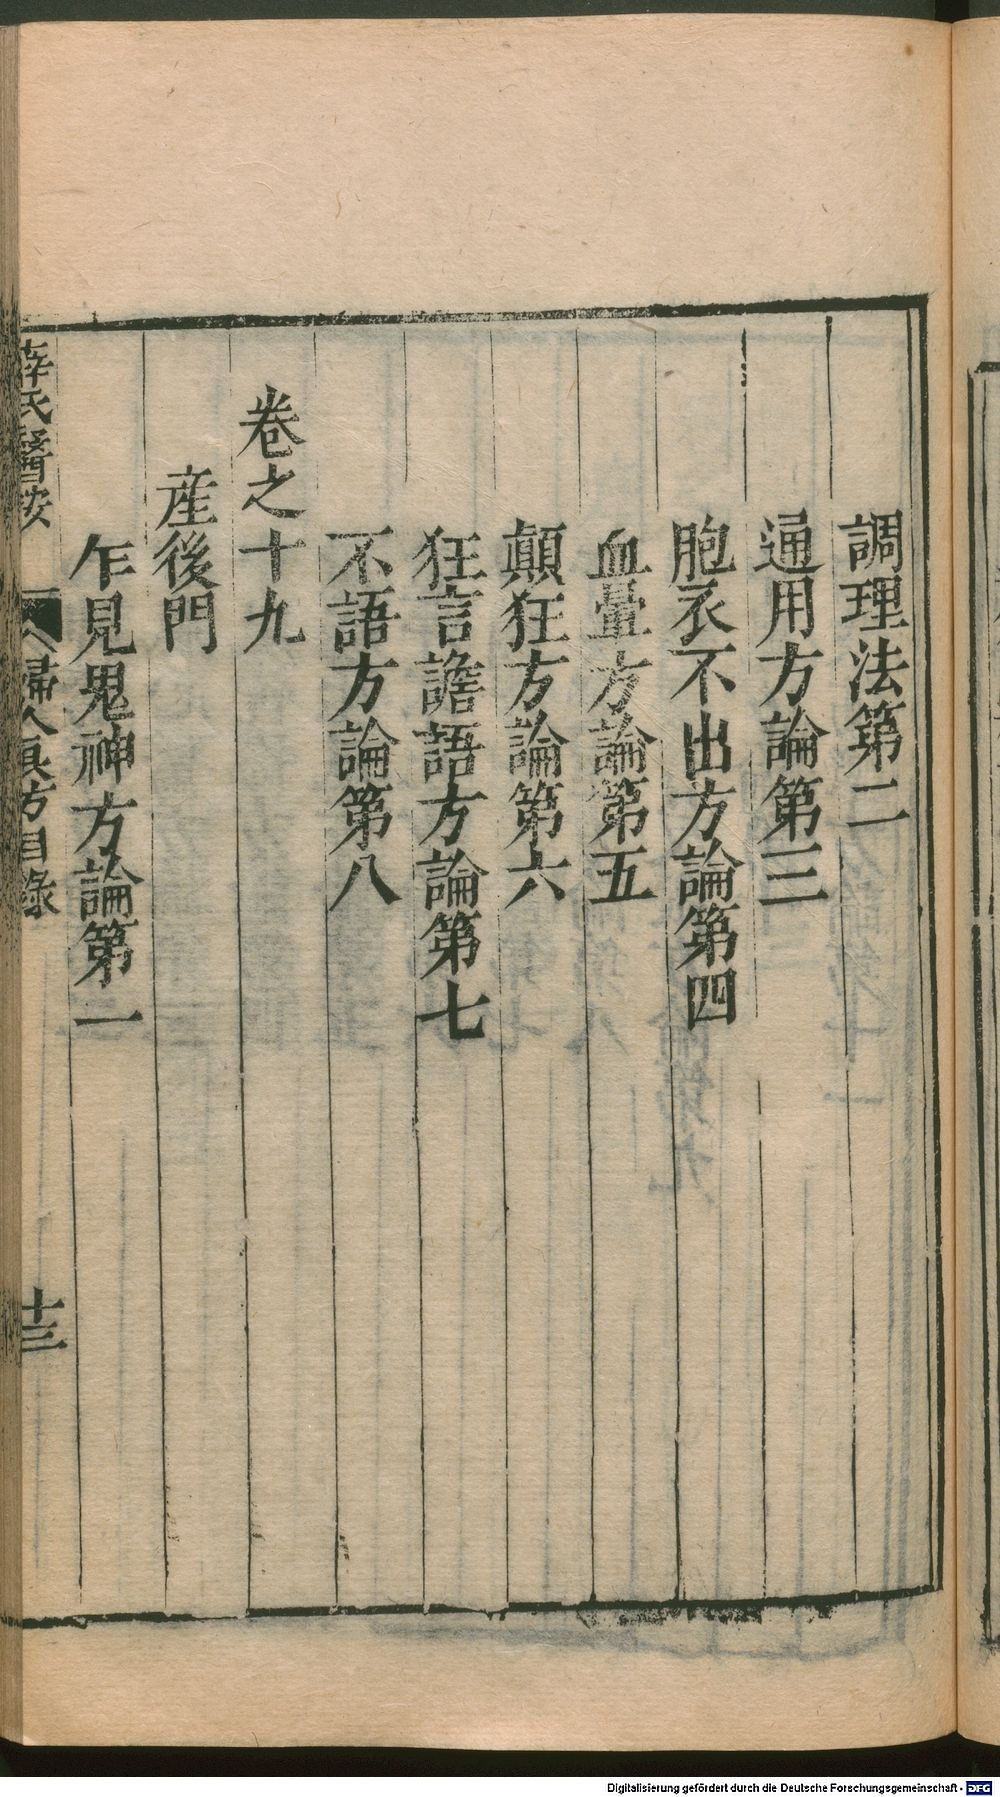 調理法第二
通用方論第三
胞衣不出方論第四
血暈方論第五
顛狂方論第六
狂言譫語方論第七
不語方論第八
卷之十九
産後門
乍見鬼神方論第一
薛氏醫按
婦人良方目錄
十三
Digitalisierung gefördert durch die Deutsche Forschungsgemeinschaft - DFG